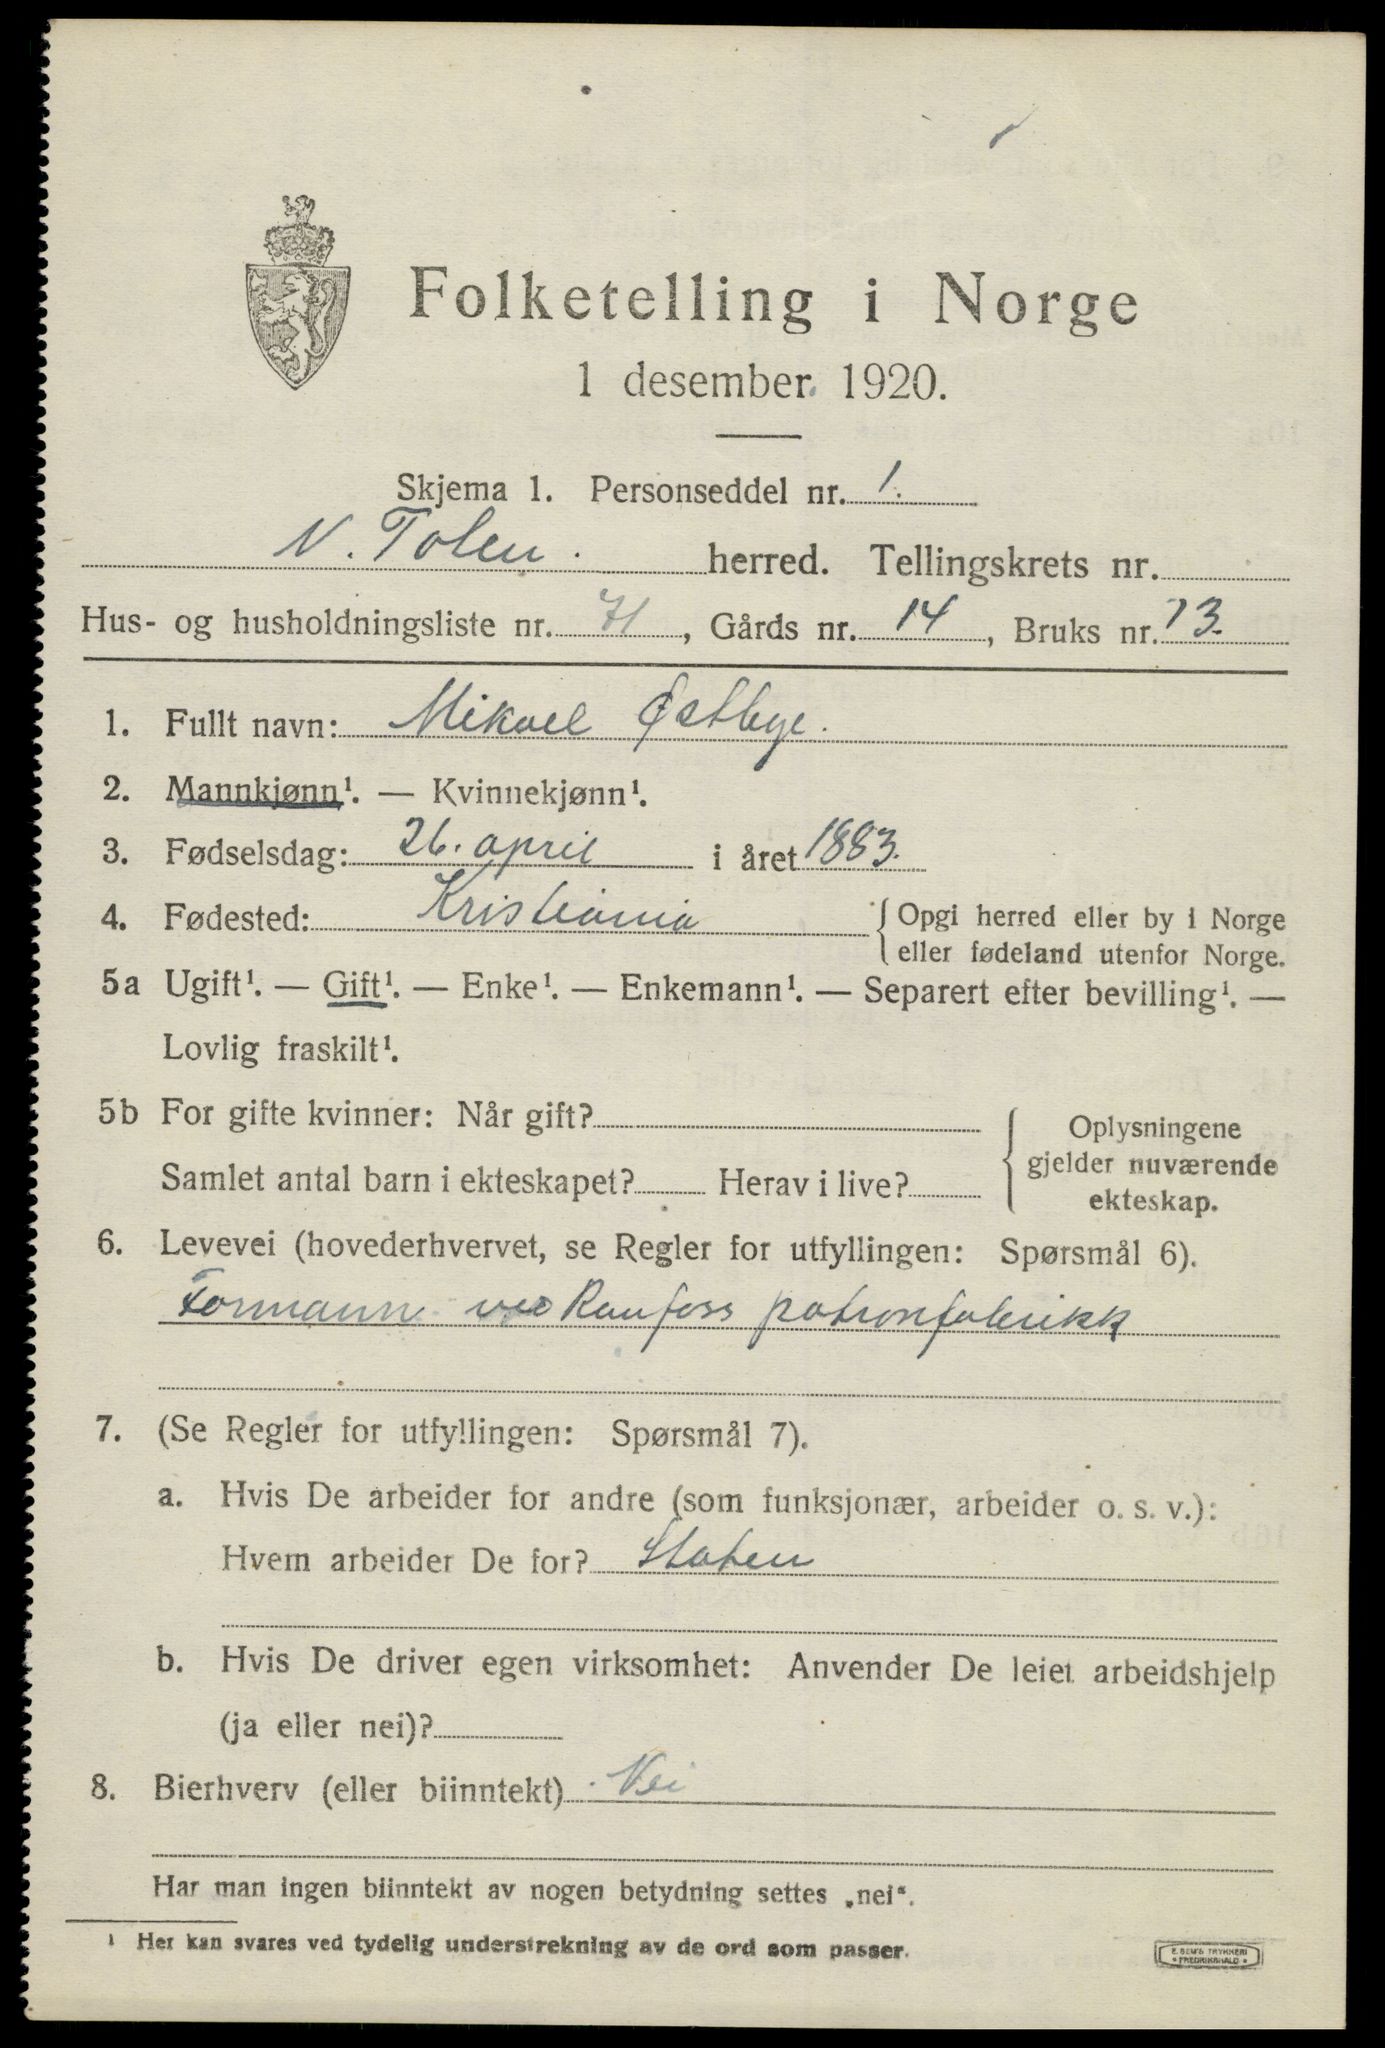 Folketelling i Norge
1 desember 1920.
Skjema 1. Personseddel nr. 1.
V. Toten. herred. Tellingskrets nr.
Hus- og husholdningsliste nr. 71, Gårds nr. 14, Bruks nr. 73.
1. Fullt navn: Mikael Østbye.
2. Mannkjønn¹. — Kvinnekjønn¹.
3. Fødselsdag: 26. april i året 1883.
4. Fødested: Kristiania { Opgi herred eller by i Norge
eller fødeland utenfor Norge.
5a Ugift¹. — Gift¹. — Enke¹. — Enkemann¹. — Separert efter bevilling¹. —
Lovlig fraskilt¹.
5b For gifte kvinner: Når gift?
Samlet antal barn i ekteskapet? Herav i live?
{ Oplysningene
gjelder nuværende
ekteskap.
6. Levevei (hovederhvervet, se Regler for utfyllingen: Spørsmål 6).
Formann ved Raufoss patronfabrikk
7. (Se Regler for utfyllingen: Spørsmål 7).
a. Hvis De arbeider for andre (som funksjonær, arbeider o. s. v.):
Hvem arbeider De for? Staten
b. Hvis De driver egen virksomhet: Anvender De leiet arbeidshjelp
(ja eller nei)?
8. Bierhverv (eller biinntekt) Nei
Har man ingen biinntekt av nogen betydning settes „nei“.
¹ Her kan svares ved tydelig understrekning av de ord som passer.
E. SEM'S TRYKKERI
• FREDRIKSHALD •